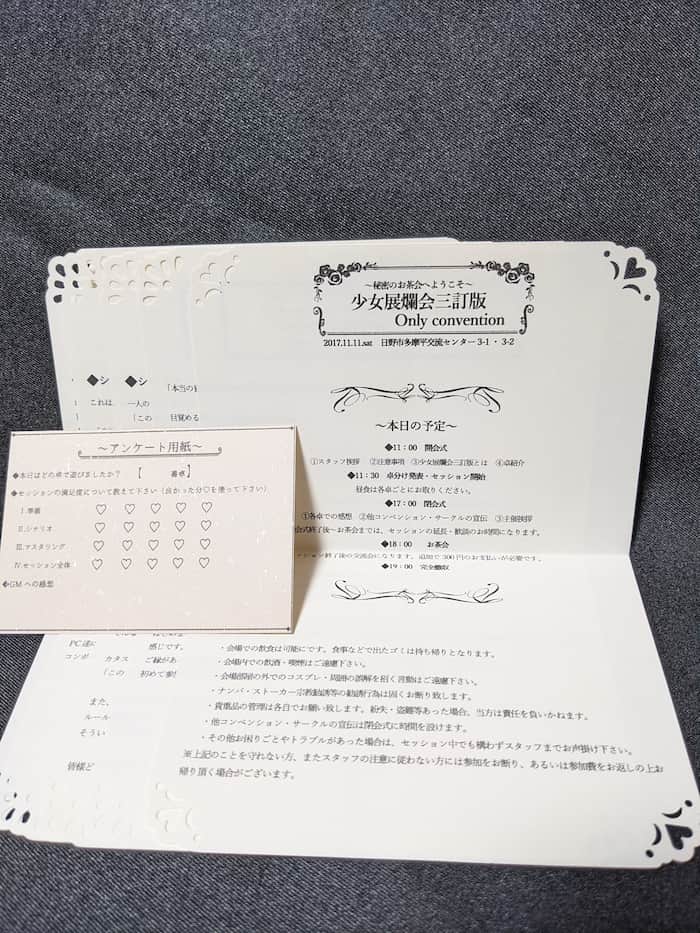 ～秘密のお茶会へようこそ～
少女展爛会三訂版
Only convention
2017.11.11.sat 日野市多摩平交流センター3-1・3-2
～本日の予定～
◆11：00 開会式
①スタッフ挨拶 ②注意事項 ③少女展爛会三訂版とは ④卓紹介
◆11：30 卓分け発表・セッション開始
昼食は各卓ごとにお取りください。
◆17：00 閉会式
①各卓での感想 ②他コンベンション・サークルの宣伝 ③主催挨拶
会式終了後～お茶会までは、セッションの延長・歓談のお時間になります。
◆18：00 お茶会
ション終了後の交流会になります。追加で300円のお支払いが必要です。
◆19：00 完全撤収
・会場での飲食は可能にです。食事などで出たゴミは持ち帰りとなります。
・会場内での飲酒・喫煙はご遠慮下さい。
・会場部屋の外でのコスプレ・周囲の誤解を招く言動はご遠慮下さい。
・ナンパ・ストーカー宗教勧誘等の勧誘行為は固くお断り致します。
・貴重品の管理は各自でお願い致します。紛失・盗難等あった場合、当方は責任を負いかねます。
・他コンベンション・サークルの宣伝は閉会式に時間を設けます。
・その他お困りごとやトラブルがあった場合は、セッション中でも構わずスタッフまでお声掛け下さい。
※上記のことを守れない方、またスタッフの注意に従わない方には参加をお断り、あるいは参加費をお返しの上お
帰り頂く場合がございます。
◆シ ◆シ 「本当の
これは、 一人の
「この 目覚める
～アンケート用紙～
◆本日はどの卓で遊びましたか？【 番卓】
◆セッションの満足度について教えて下さい（良かった分♡を塗って下さい）
Ⅰ.準備 ♡ ♡ ♡ ♡ ♡
Ⅱ.シナリオ ♡ ♡ ♡ ♡ ♡
Ⅲ.マスタリング ♡ ♡ ♡ ♡ ♡
Ⅳ.セッション全体 ♡ ♡ ♡ ♡ ♡
◆GMへの感想
PC達に 感じです。
コンボ カタス ご縁があ
「この 初めて参
また、
ルール
そうい
皆様と